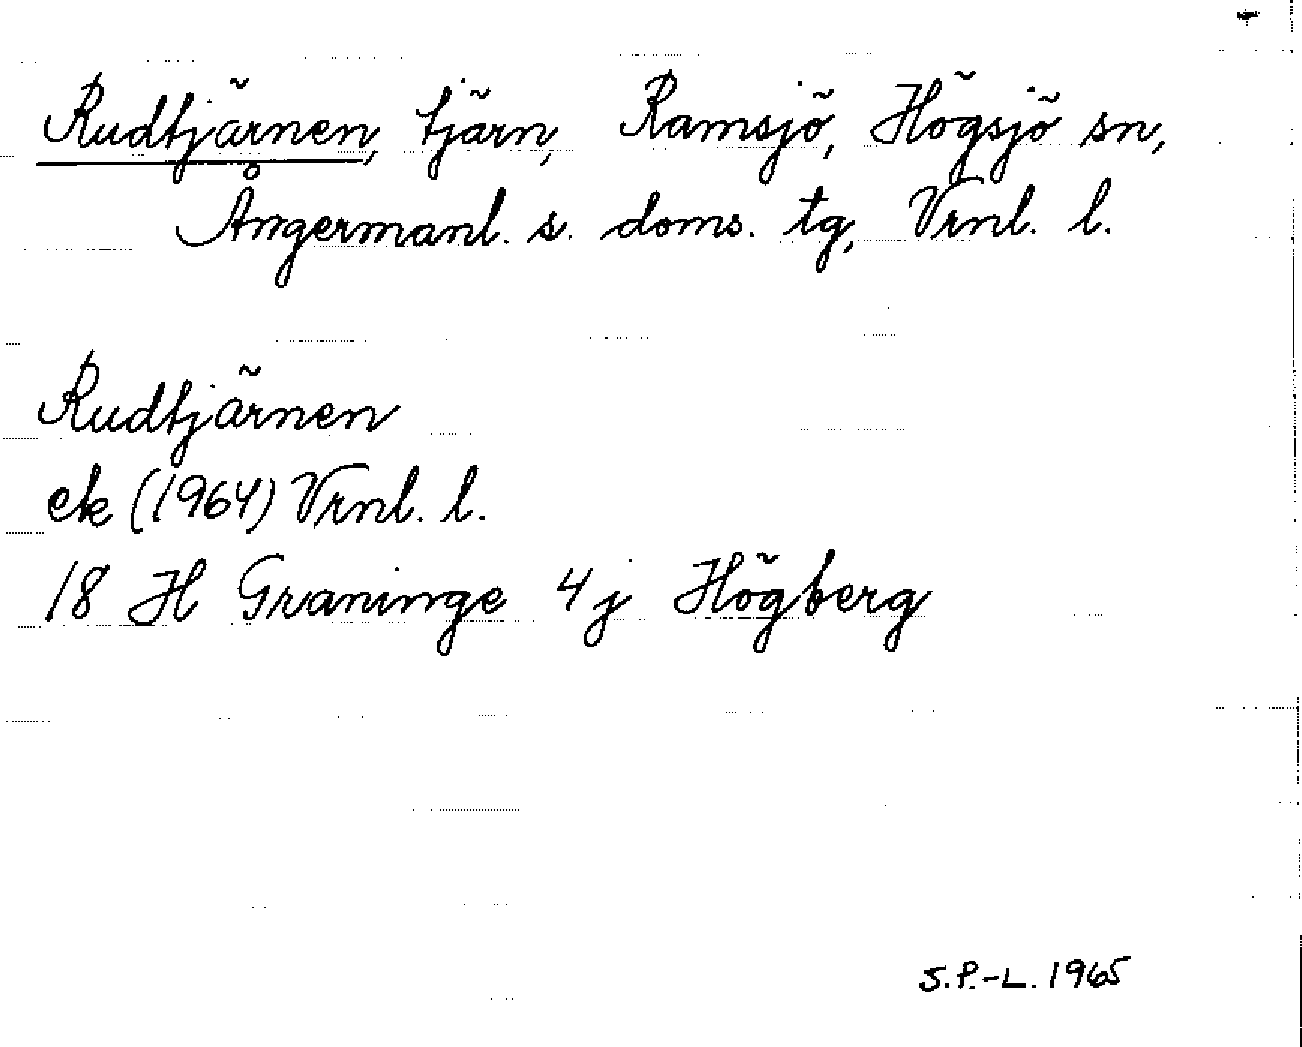 Rudtjärnen, tjärn, Ramsjö, Högsjö sn,
Ångermanl. s. doms. tg, Vrnl. l.
Rudtjärnen
ek (1964) Vrnl. l.
18 H Graninge 4 j Högberg
S.P.-L. 1965